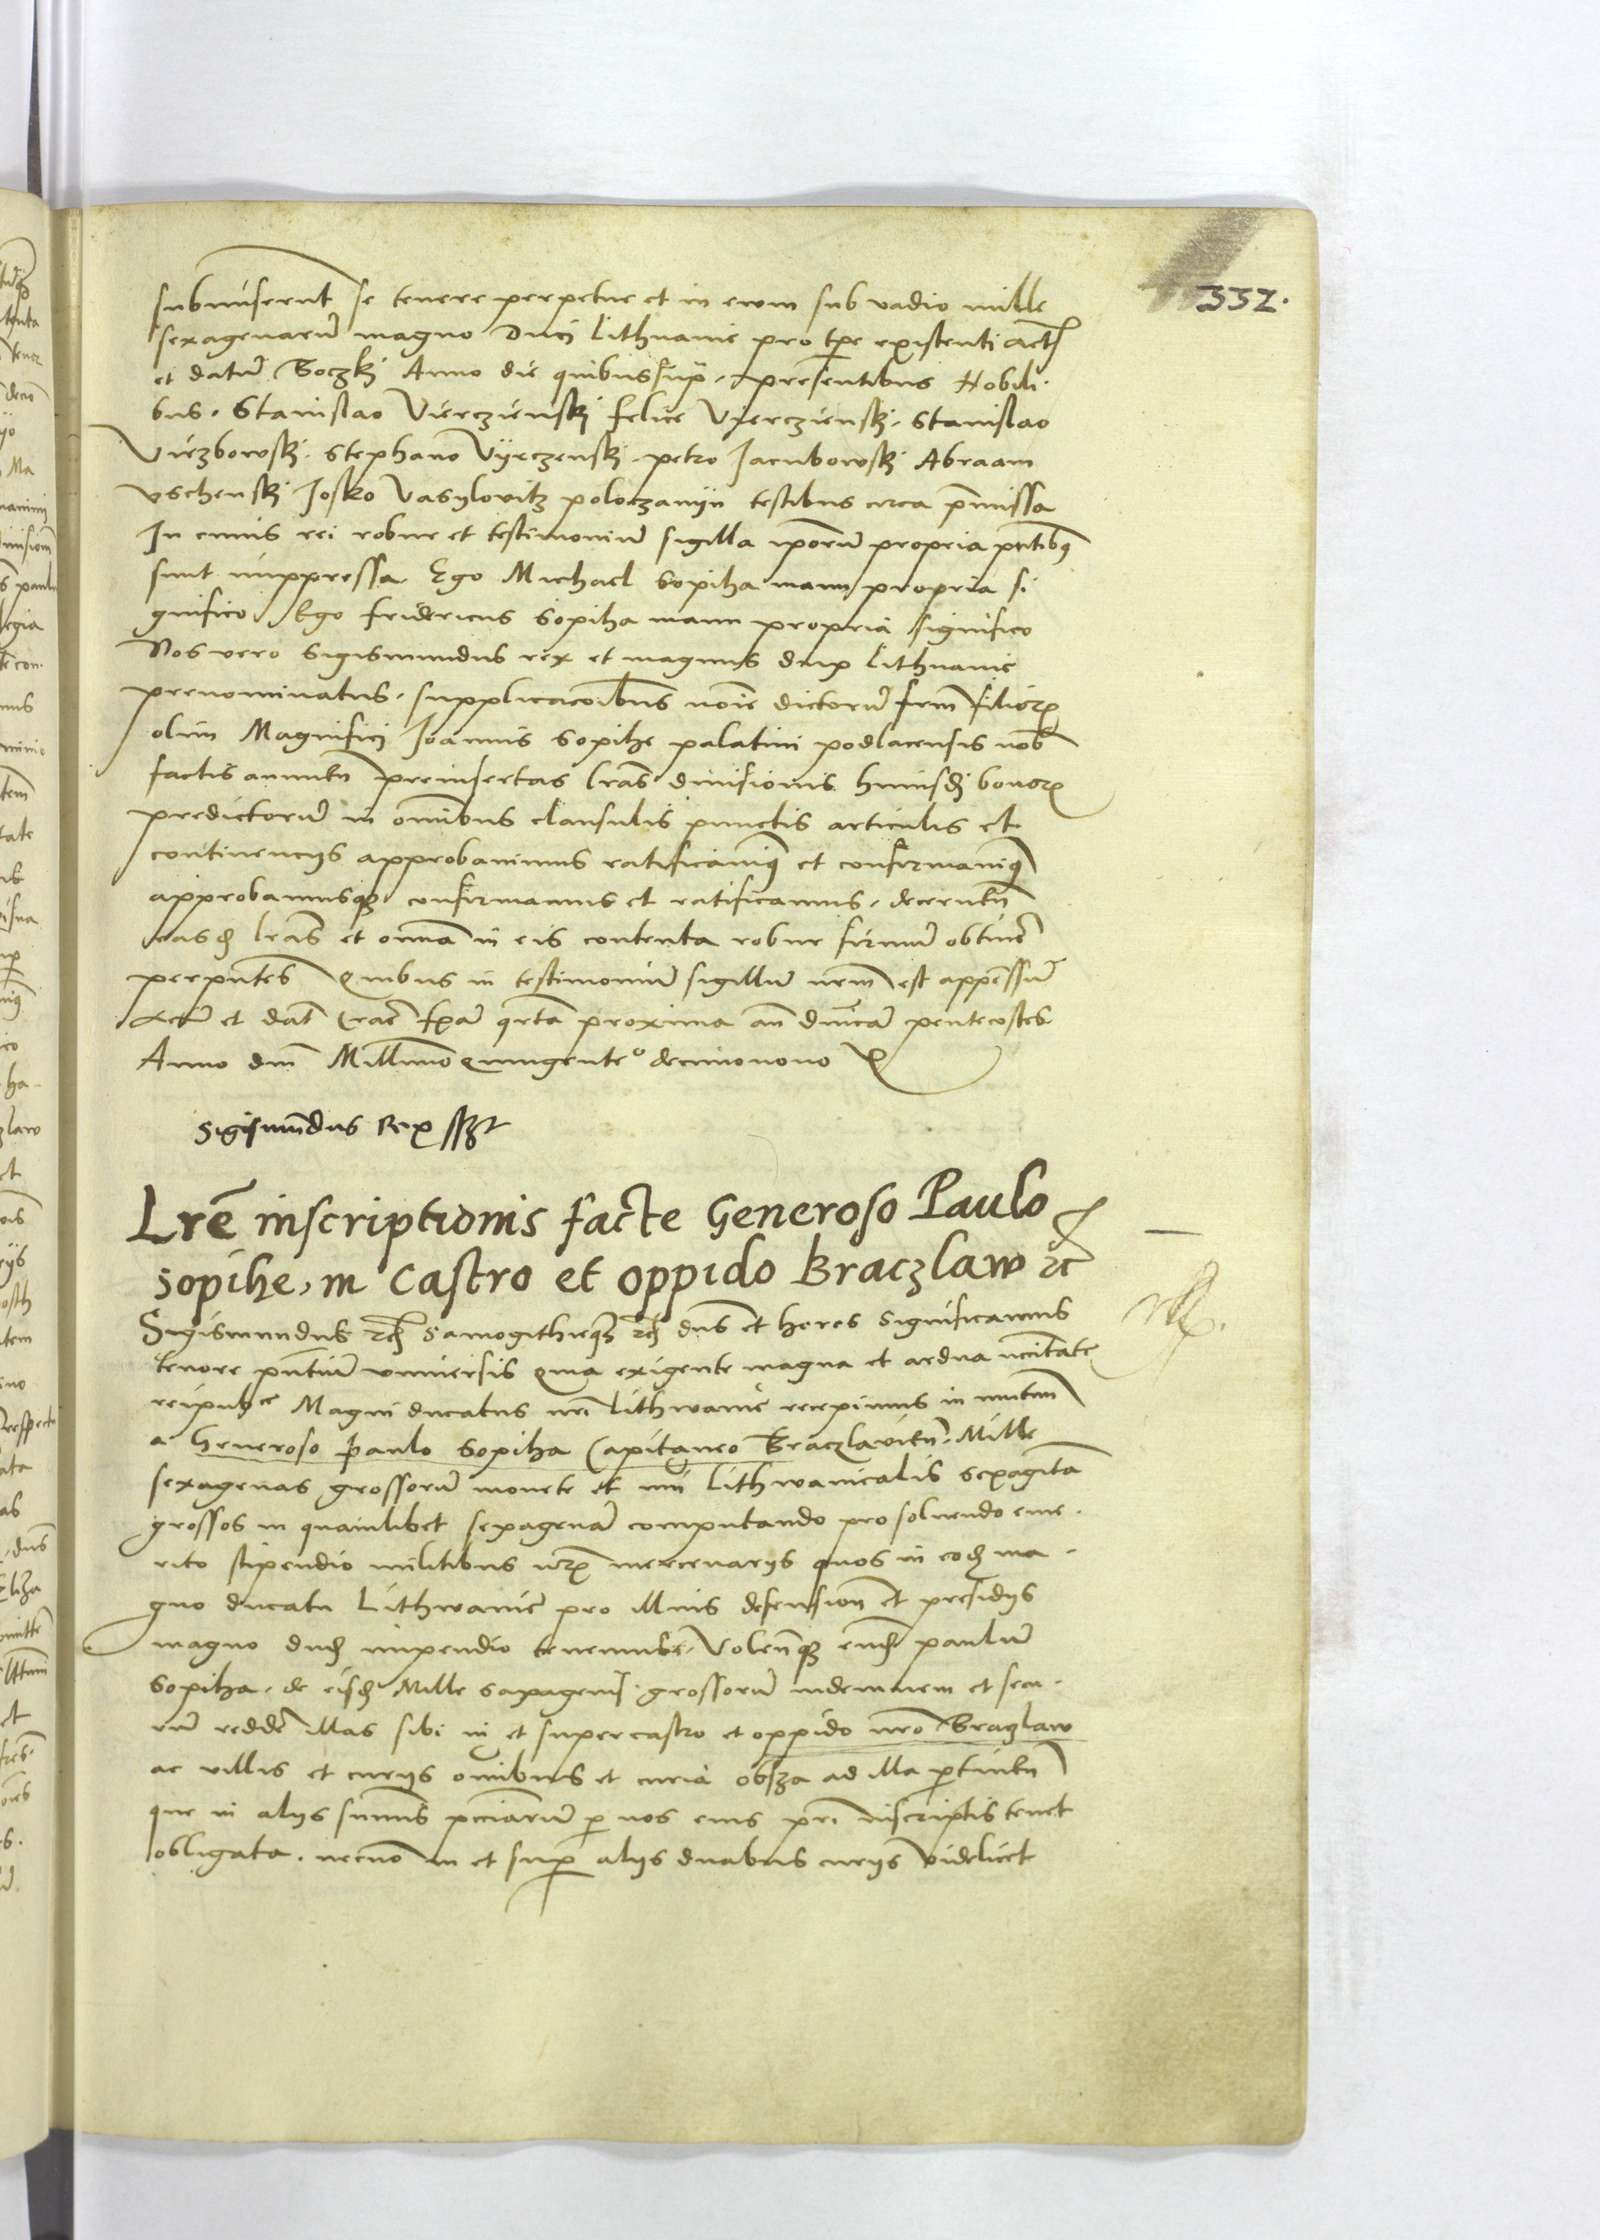 332.
submiserunt se tenere perpetue et in ewm sub vadio mille
sexagenarū magno Duci Lithuanie pro tpe existenti Actū
et datū Boczki Anno die quibus sup. presentibus Nobili-
bus. Stanislao Vierzienski felice Vyerczienski. Stanislao
Vierzbowski. Stephano Vyrczenski petro Jacubowski Abraam
Uschenski Josko Vasylovitz poloczanijn testibus circa p̄missa
In cuius rei robur et testimoniū sigilla ipsorū propria pn̄tibꝫ
sunt impressa. Ego Michael Sopiha manu propria si
gnifico Ego fridericus Sopiha manu propria significo
Nos vero Sigismundus rex et magnus dux Lithuanie
prenominatus. supplicacoībus noīe dictorū frm̄ filiorꝝ
olim Magnifici Joannis Sopihe palatini podlacensis nob̄
factis annuen̄ preinsertas lrās divisionis huiusdj bonorꝝ
predictorū in om̄ibus clausulis punctis articulis et
continencijs approbavimus ratificavimꝰ et confirmavimꝰ
approbamusqꝫ confirmamus et ratificamus. decernen̄
easdē lrās et omnia in eis contenta robur firmū obtinē
per pn̄tes Quibus in testimoniū sigillū nrm̄ est appenssū
Actū et dat̄ Crac̄ fr̄a qr̄ta proxima an̄ dn̄icā pentecostes
Anno dn̄i Millimo quingente° decimonono
Sigismundus Rex sszt
Lrē inscriptionis facte Generoso Paulo
Sopihe, in Castro et oppido Braczlaw ꝛc̄
Sigismundus ꝛc̄ Samogithieqꝫ ꝛc̄ dn̄s et heres Significamus
tenore pn̄tiū universis quia exigente magna et ardua nc̄itate
reipubce Magni ducatus nr̄i Lithwanie recepimus in mutuū
a Generoso Paulo Sopiha Capitaneo Braczlavien̄. Mille
sexagenas grossorū monete et nūi Lithwanicalis sexaginta
grossos in quamlibet sexagenā computando pro solvendo eme-
rito stipendio militibus nr̄is mercenarijs quos in eodē ma-
gno ducatu Lithwanie pro illius defension̄ et presidijs
magno impendio tenemus. Volen̄qꝫ eundē paulū
Sopiha. de eisdē Mille sexagenis grossorū indemnem et secu-
rū reddē illas sibi in et super castro et oppido nr̄o Braczlaw
ac villis et curijs om̄ibus et curia Obsza ad illa ptinen̄
que in alijs summis pcciiarū p nos eius pr̄i inscriptis tenet
obligata. necnō in et sup alijs duabus curijs videlicet